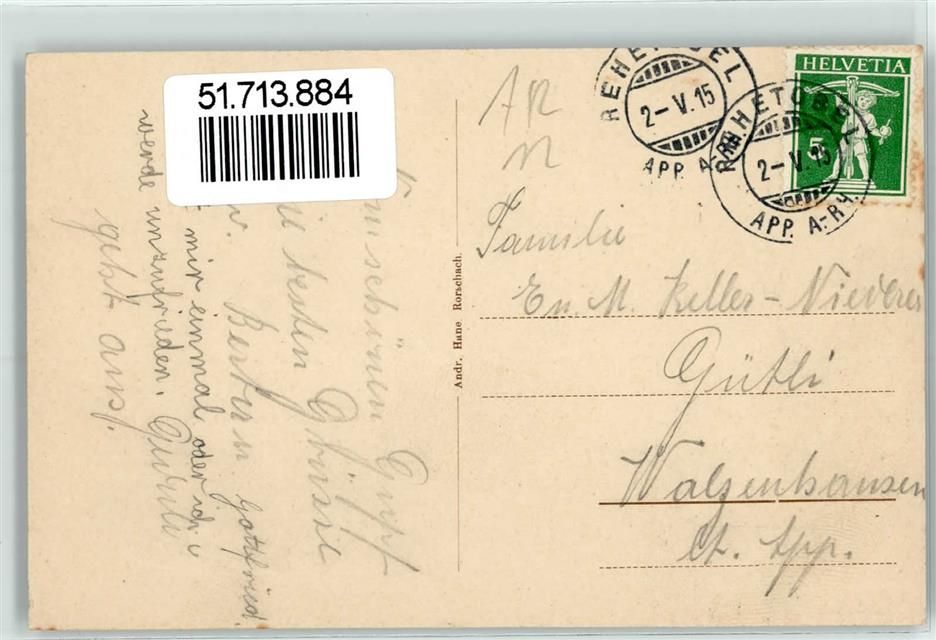 51.713.884
HELVETIA
5
REHETOBEL
2-V.15
APP. A-RH.
REHETOBEL
2-V.15
APP. A-RH.
AR
Familie
En. M. Keller-Niederer
Gütli
Walzenhausen
Ct. App.
Andr. Hane Rorschach.
Vom schönen Gupf
die besten Grüsse
Bertram Gottfried.
mir einmal oder ich
werde unzufrieden.
geht aus!